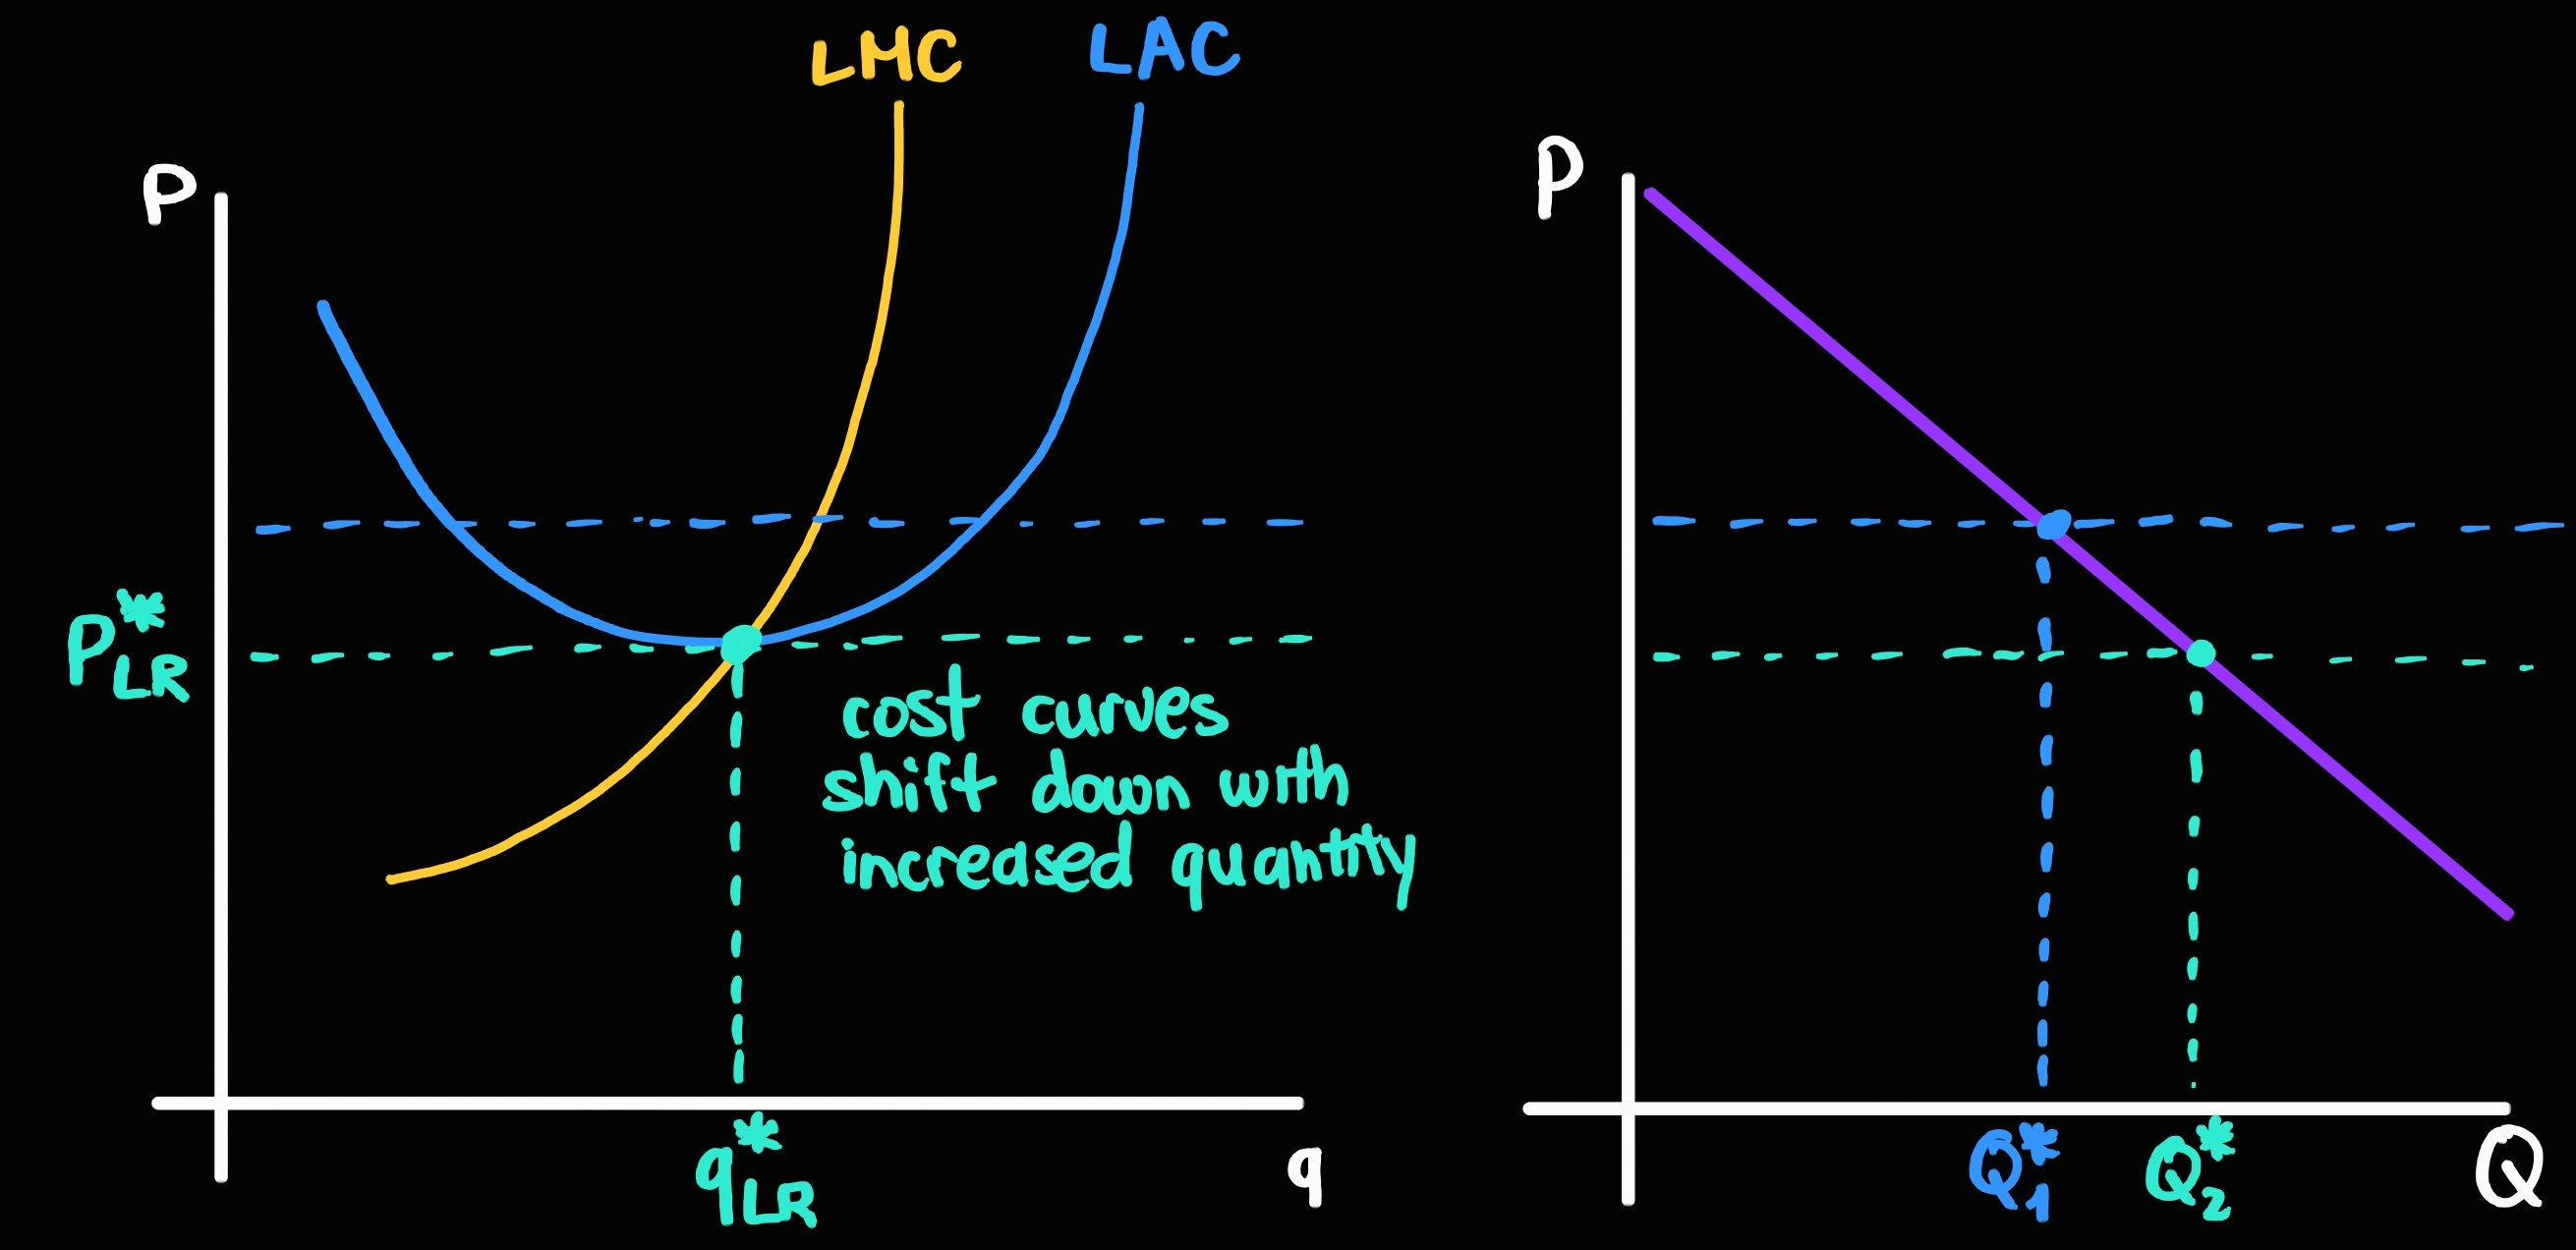 LMC
LAC
P
P*LR
cost curves
shift down with
increased quantity
q*LR
q
P
Q*1
Q*2
Q